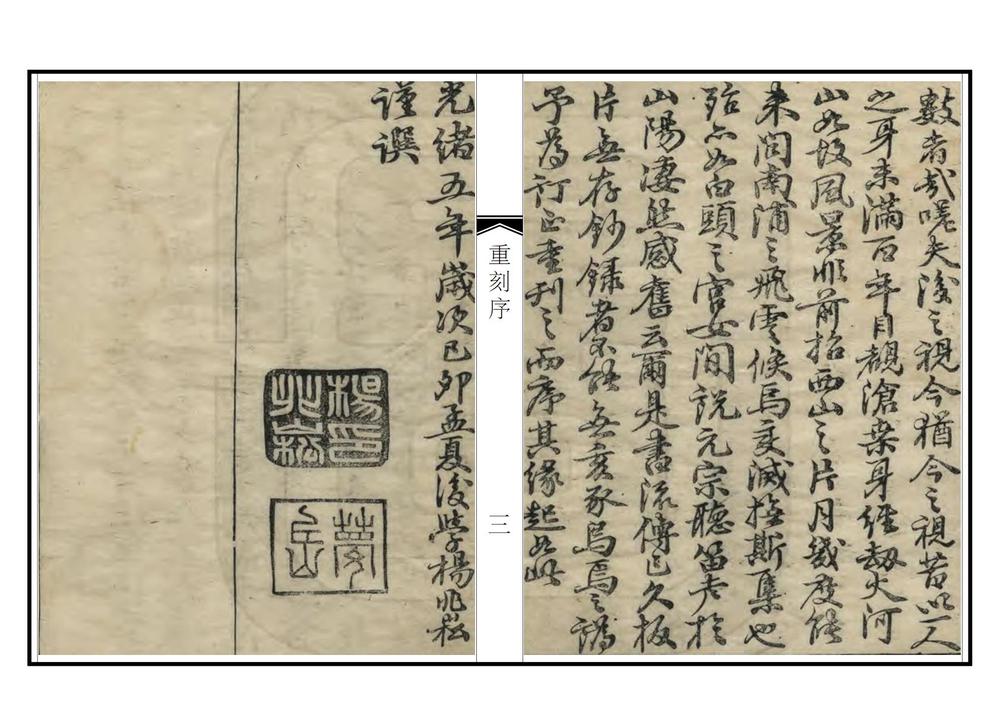 數者哉嗟夫後之視今猶今之視昔以一人
之身未滿百年目覩滄桑身經劫火河
山如故風景非前招西山之片月幾度能
來問南浦之飛雲倏焉變滅撫斯集也
殆亦如白頭之宮女閒說元宗聽笛步於
山陽凄然感舊云爾是書流傳已久板
片無存鈔錄者不能無亥豕烏焉之譌
予為訂正重刊之而序其緣起如此
重刻序
三
光緒五年歲次己卯孟夏後學楊兆崧
謹譔
楊印兆崧
夢岳